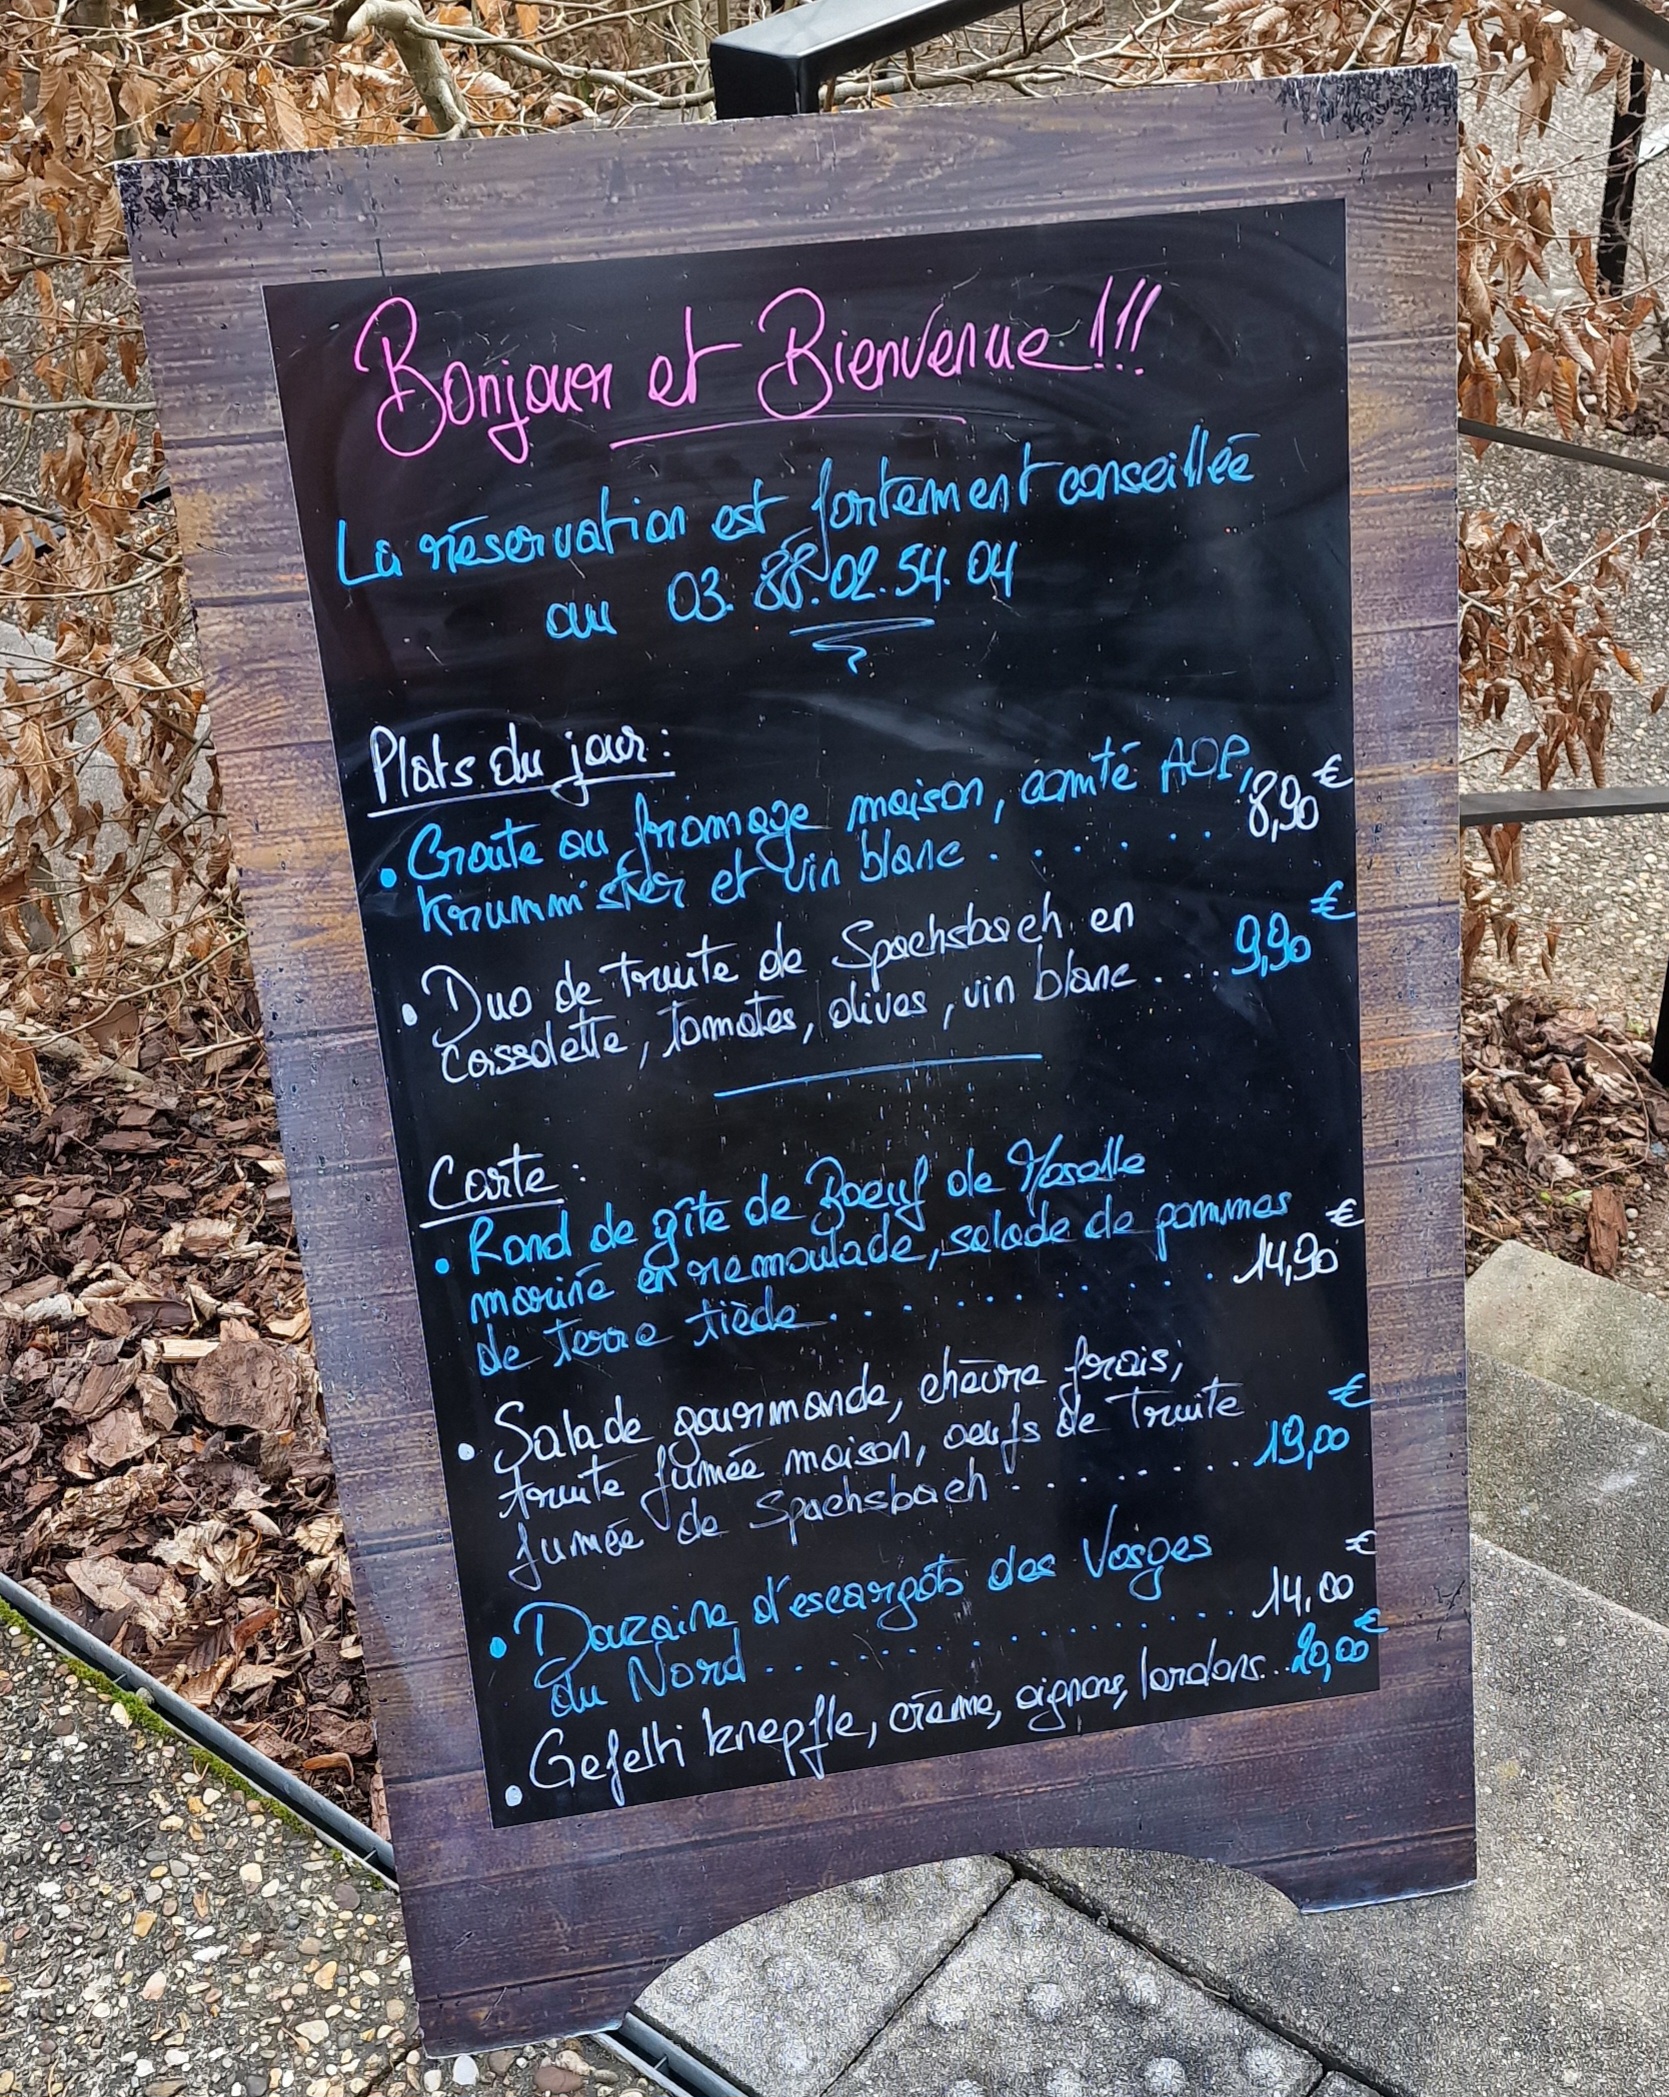 Bonjour et Bienvenue !!!
La réservation est fortement conseillée
au 03.88.02.54.04
Plats du jour :
• Croûte au fromage maison, comté AOP,
Krummi ster et vin blanc . . . . . . 8,90€
• Duo de truite de Spachsbach en
cassolette, tomates, olives, vin blanc .... 9,90€
Carte :
• Rond de gîte de Boeuf de Moselle
mariné en remoulade, salade de pommes
de terre tiède . . . . . . . . . . 14,90€
• Salade gourmande, chèvre frais,
truite fumée maison, oeufs de Truite
fumée de Spachsbach . . . . . . . . 19,00€
• Douzaine d'escargots des Vosges
du Nord . . . . . . . . . . . . . . 14,00€
• Gefelti knepfle, crème, oignons, lardons...20,00€